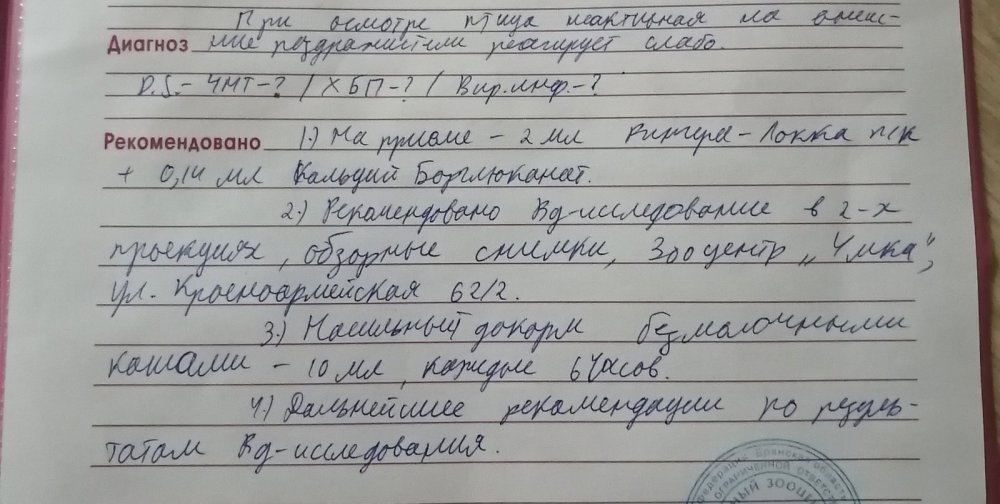 При осмотре птица неактивная на внеш-
Диагноз ние раздражители реагирует слабо.
D.S.- ЧМТ-? / ХБП-? / Вир.инф.-?
Рекомендовано 1.) На приеме - 2 мл Рингера-Локка п/к
+ 0,14 мл Кальций Борглюканат.
2.) Рекомендовано Rg-исследование в 2-х
проекциях, обзорные снимки, Зооцентр "Умка",
ул. Красноармейская 62/2.
3.) Насильный докорм безмалочными
кашами - 10 мл, каждые 6 часов.
4.) Дальнейшие рекомендации по резуль-
татам Rg-исследования.
Федерация Брянская область
ОГРАНИЧЕННОЙ ОТВЕТСТ
НЫЙ ЗООЦЕ